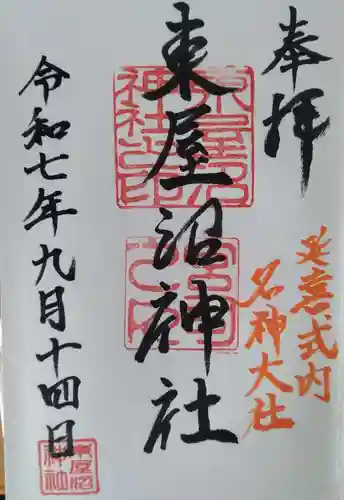 奉拝
延喜式内
名神大社
東屋沼神社
東屋沼神社之印
宮司之印
令和七年九月十四日
東屋沼神社